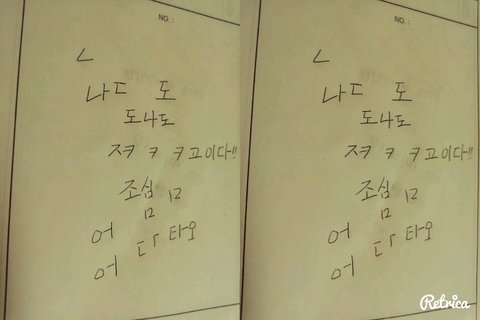 NO.:
ㄴ
나ㄷ 도
도나도
져 ㅋ ㅋ고이다!!
조심 ㅁ
ㅁ
어 다 타오
어
NO.:
ㄴ
나ㄷ 도
도나도
져 ㅋ ㅋ고이다!!
조심 ㅁ
ㅁ
어 다 타오
어
Retrica